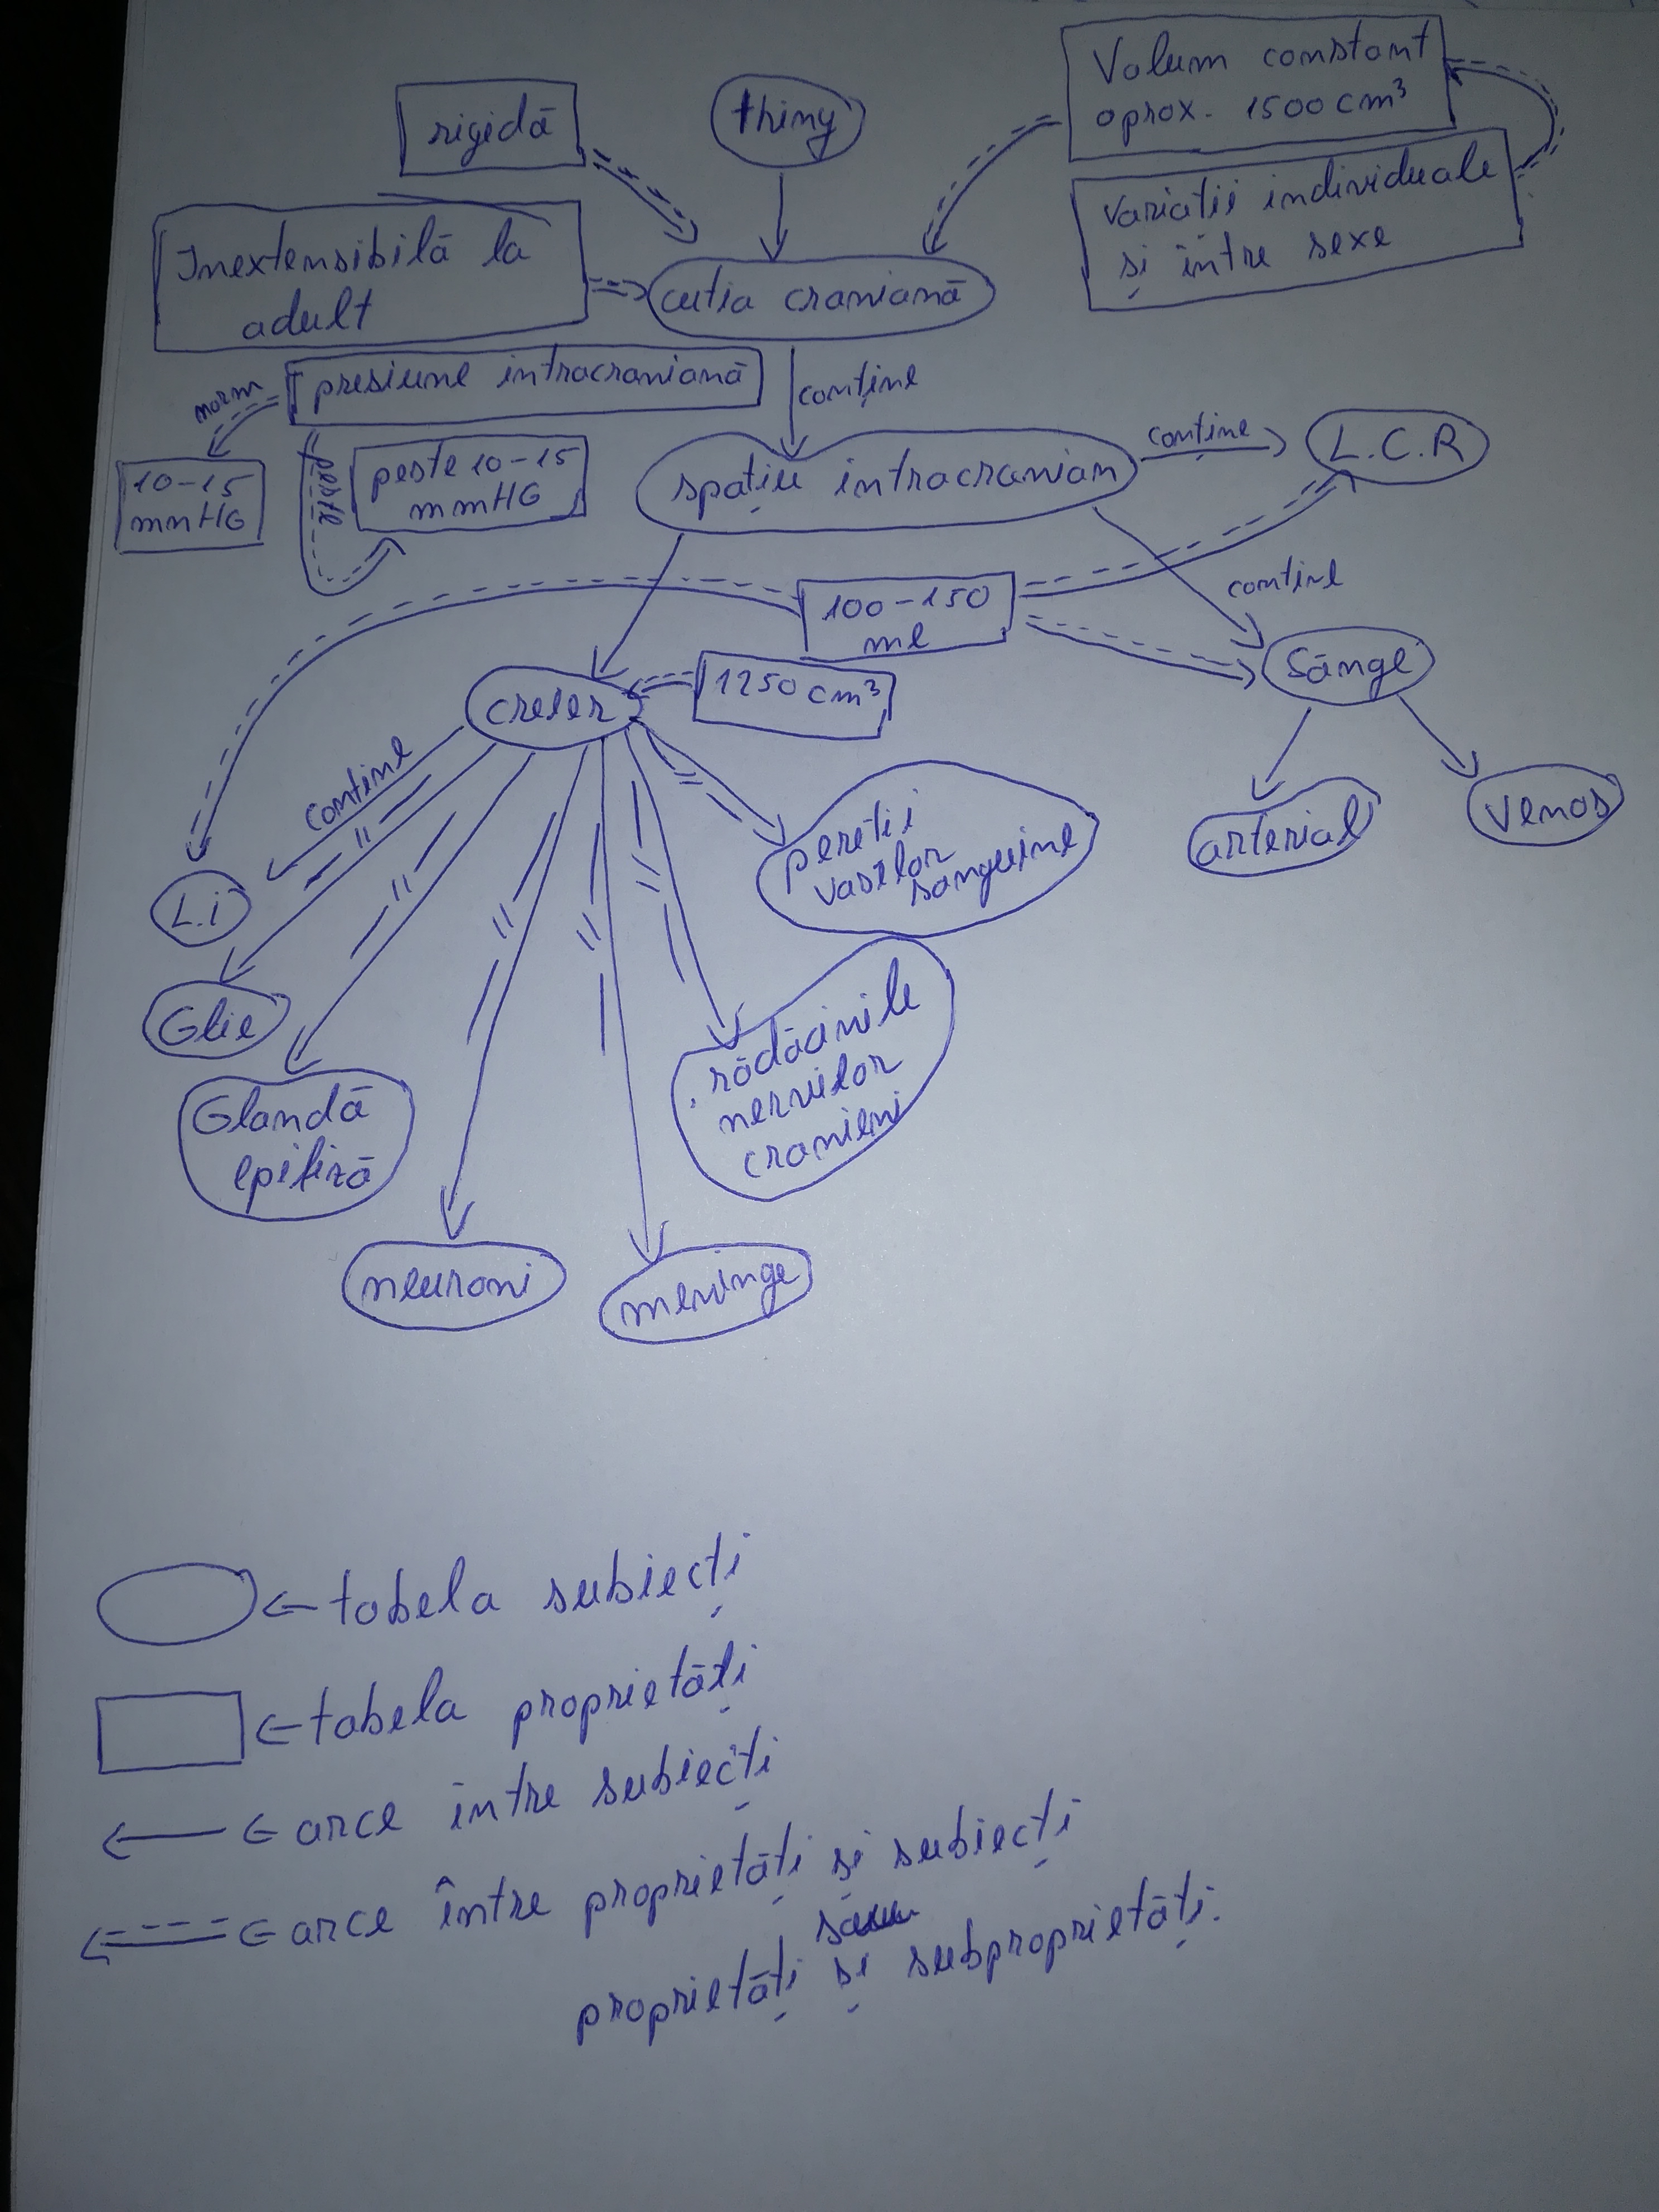 rigidă
thing
Volum constant
aprox. 1500 cm³
Variații individuale
și între sexe
Inextensibilă la
adult
cutia craniană
presiune intracraniană
norm
conține
10-15
mmHG
peste
peste 10-15
mmHG
spațiu intracranian
conține
L.C.R
conține
100-150
ml
Sânge
creier
1250 cm³
conține
arterial
venos
L.i
"
"
"
"
"
"
pereții
vaselor
sanguine
Glie
rădăcinile
nervilor
cranieni
Glandă
epifiză
neuroni
meninge
tabela subiecți
tabela proprietăți
arce între subiecți
arce între proprietăți și subiecți
sau
proprietăți și subproprietăți.